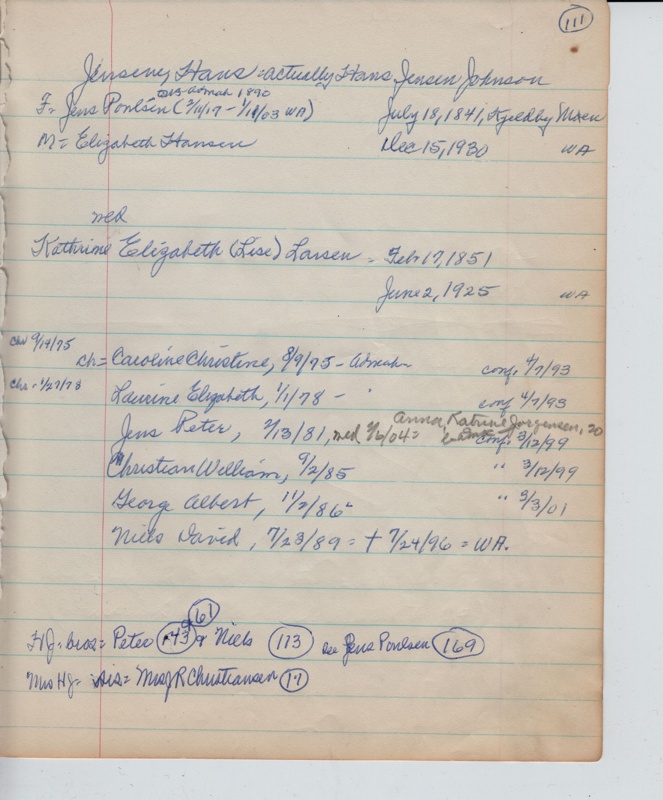 111
Jensen, Hans = actually Hans Jensen Johnson
Admah 1890
F = Jens Poulsen (3/11/17 - 1/11/03 WA) July 18, 1841, Kjeldby Moen
M = Elizabeth Hansen Dec 15, 1930 WA
med
Kathrine Elizabeth (Lise) Larsen - Feb 17, 1851
June 2, 1925 WA
chr 9/14/75
ch = Caroline Christine, 8/9/75 - Admah conf. 4/7/93
chr - 1/27/78 Laurine Elizabeth, 1/1/78 - " conf 4/7/93
Anna Katrine Jorgensen, 20
Jens Peter, 2/13/81, med 3/6/04 = conf. 3/12/99
Christian William, 9/2/85 " 3/12/99
George Albert, 11/2/86 " 3/3/01
Niels David, 7/23/89 = + 7/24/96 = WA.
61
HJ = bros = Peter 43 & Niels 113 see Jens Poulsen 169
Mrs HJ = sis = Mrs J R Christiansen 17